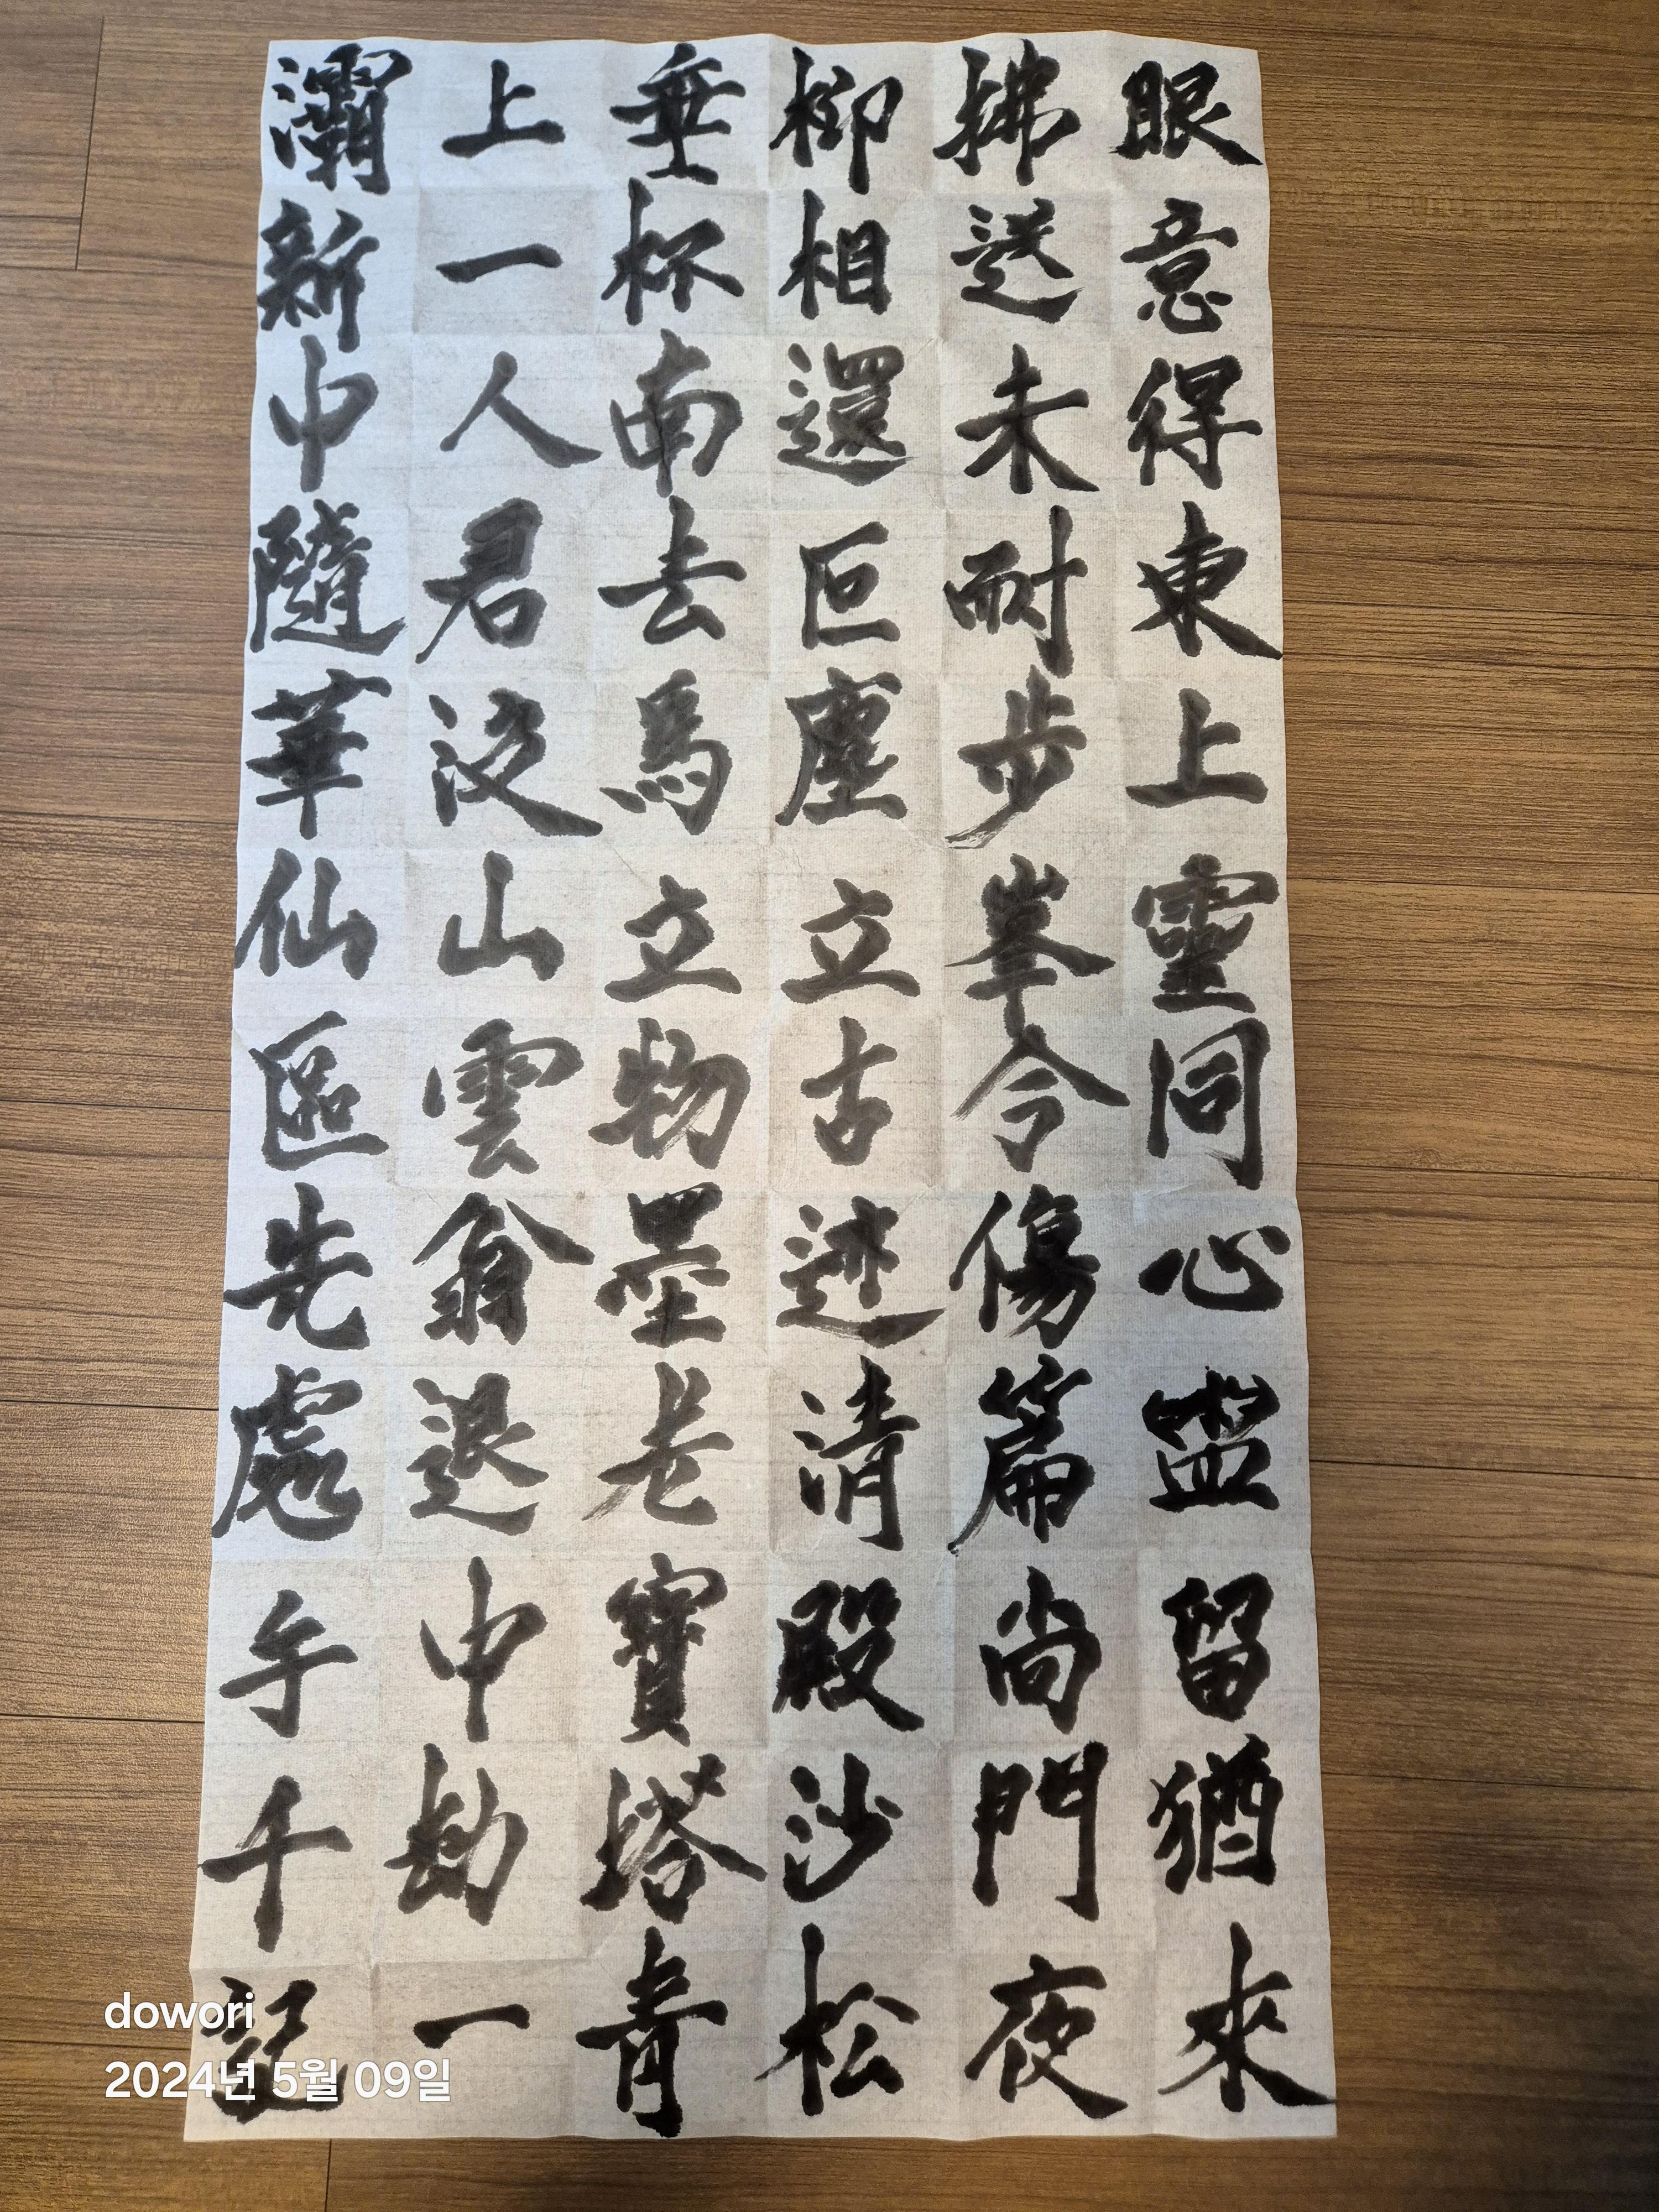 眼意得東上靈同心留猶來
拂送未耐步峯令傷篇尚門夜
柳相還叵塵立古迹清殿沙松
垂杯南去馬立物墨老寶塔青
上一人君山雲翁退中一
灞新中隨華仙區先處午千記
dowori
2024년 5월 09일